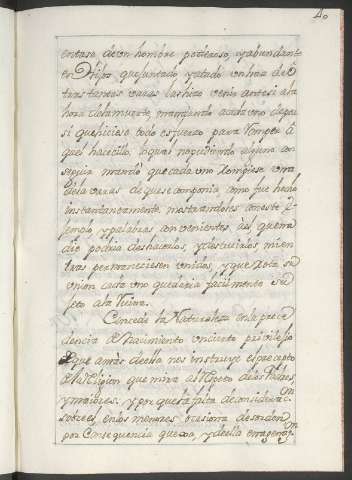 en casa de un hombre poderoso, y abundante
en Hijos que juntado, y atado un haz de
tras tantas varas las hizo venir antes a la
hora de la muerte, mandando a cada uno de por
si que hiciese todo esfuerzo para romper a
quel hacecillo, lo qual no pudiendo alguno con
seguir mandò que cada uno rompiese una
de la varas de que se componia, como fue hecho
instantaneamente, mostrandoles con este e-
xemplo, y palabras convenientes, asi que no
podria deshacerlos, y destruirlos, mien
tras permaneciesen unidos, y que rota su
union cada uno quedaria facilmente su
jeto a la Ruina.
Concede la Naturaleza en la prece
dencia de Nacimiento un cierto privilejio
que amàs de ella nos instruye el precepto
de la Religion que mira al respeto de los Padres,
y maiores: y por que la falta de consideracion
sobre el en los menores ocasiona desorden
por consequencia quexa, y de ella